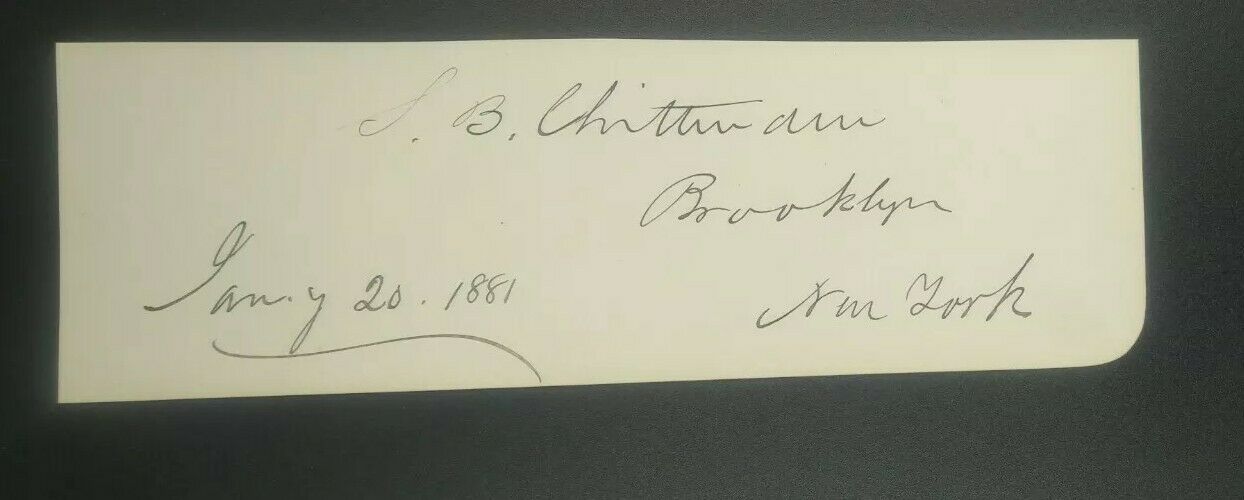 S. B. Chittenden
Brooklyn
Jan.y 20. 1881
New York